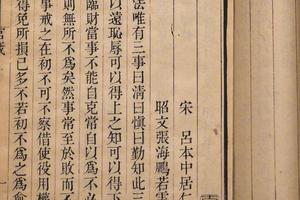 宋 呂本中居仁
昭文張海鵬若雲
法唯有三事曰清曰慎曰勤知此三
以遠恥辱可以得上之知可以得下
臨財當事不能自克常自以為不必
則無所不為矣然事常至於敗而不
事戒之在初不可不察借使役用權
得免所損已多不若初不為之為愈
官箴